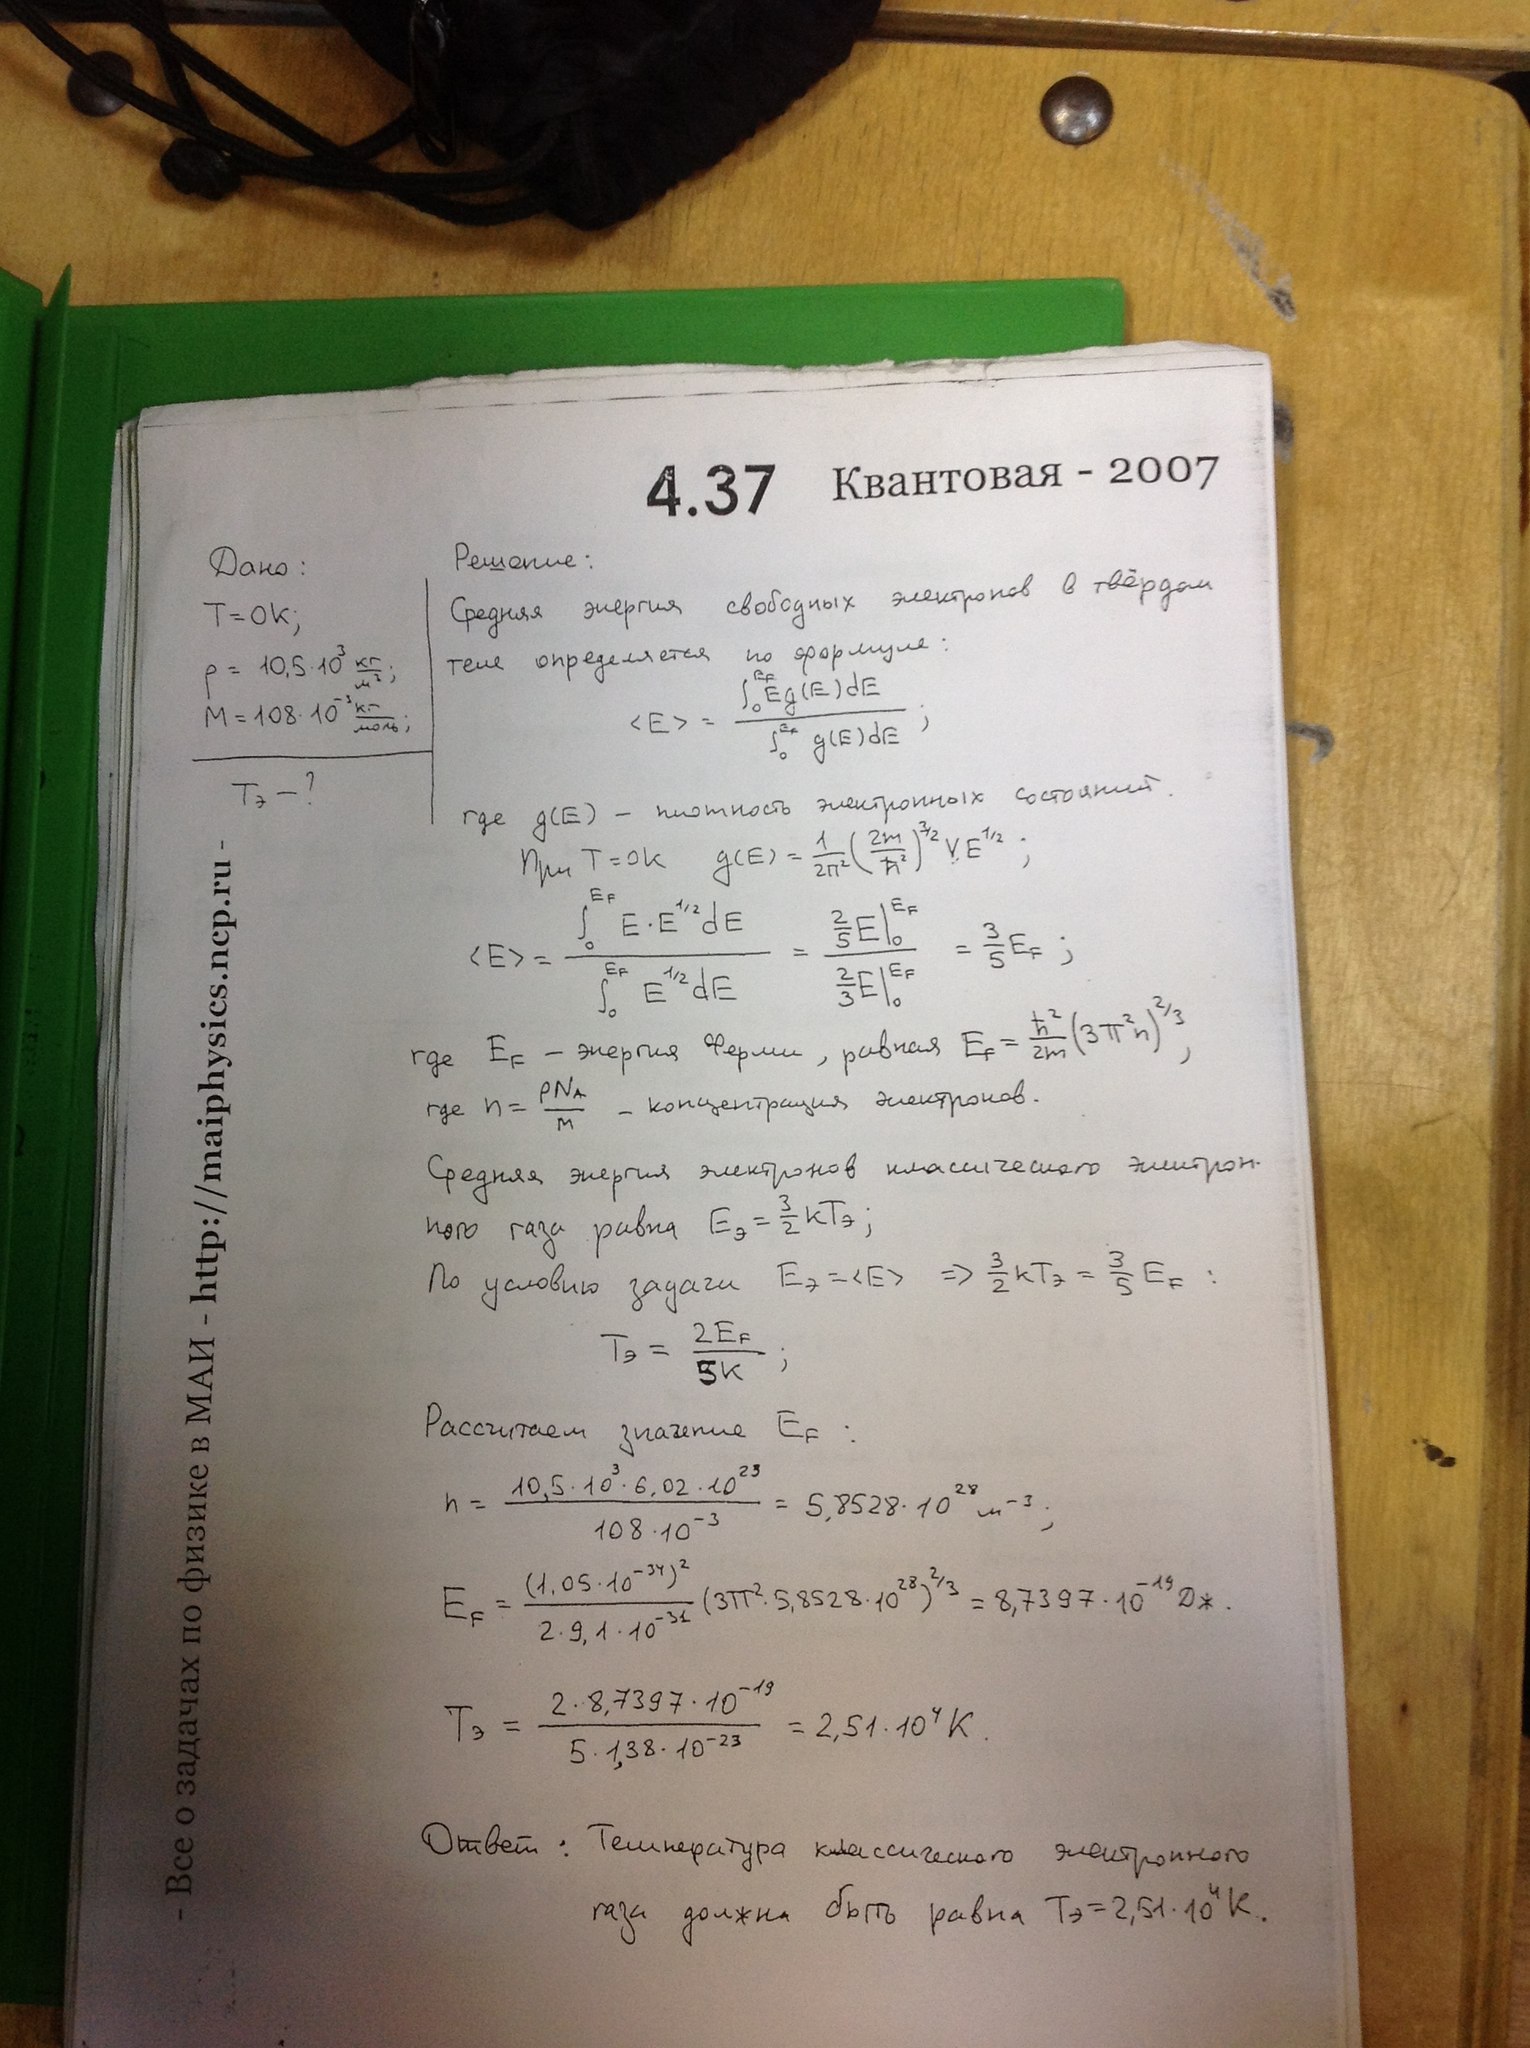 4.37 Квантовая - 2007
Дано:
T=0K;
ρ = 10,5·10³ кг/м³;
M=108·10⁻³ кг/моль;
Tэ — ?
Решение:
Средняя энергия свободных электронов в твёрдом
теле определяется по формуле:
<E> = ∫₀^{E_F} E g(E)dE / ∫₀^{E_F} g(E)dE ;
где g(E) – плотность электронных состояний.
При T=0K g(E) = 1/2π² (2m/ħ²)^{3/2} V E^{1/2} ;
<E> = ∫₀^{E_F} E·E^{1/2} dE / ∫₀^{E_F} E^{1/2} dE = 2/5 E|₀^{E_F} / 2/3 E|₀^{E_F} = 3/5 E_F ;
где E_F – энергия Ферми, равная E_F = ħ²/2m (3π²n)^{2/3} ;
где n = ρN_A/M – концентрация электронов.
Средняя энергия электронов классического электрон-
ного газа равна Eэ = 3/2 kTэ ;
По условию задачи Eэ = <E> => 3/2 kTэ = 3/5 E_F :
Tэ = 2E_F / 5K ;
Рассчитаем значение E_F :
n = 10,5·10³·6,02·10²³ / 108·10⁻³ = 5,8528·10²⁸ м⁻³ ;
E_F = (1,05·10⁻³⁴)² / 2·9,1·10⁻³¹ (3π²·5,8528·10²⁸)^{2/3} = 8,7397·10⁻¹⁹ Дж.
Tэ = 2·8,7397·10⁻¹⁹ / 5·1,38·10⁻²³ = 2,51·10⁴ K.
Ответ: Температура классического электронного
газа должна быть равна Tэ=2,51·10⁴ K.
- Все о задачах по физике в МАИ - http://maiphysics.ncp.ru -